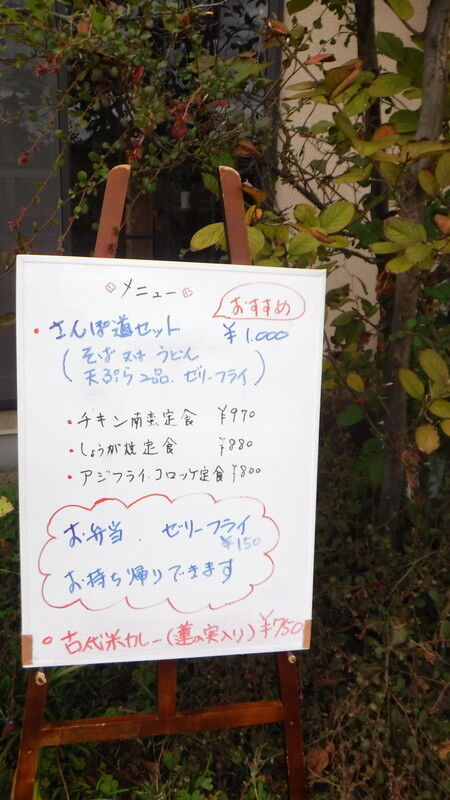 メニュー
おすすめ
・さんぽ道セット ¥1.000
(そば or うどん
天ぷら2品.ゼリーフライ)
・チキン南蛮定食 ¥970
・しょうが焼定食 ¥880
・アジフライ.コロッケ定食 ¥800
お弁当.ゼリーフライ
¥150
お持ち帰りできます
○古代米カレー(蓮の実入り)¥750